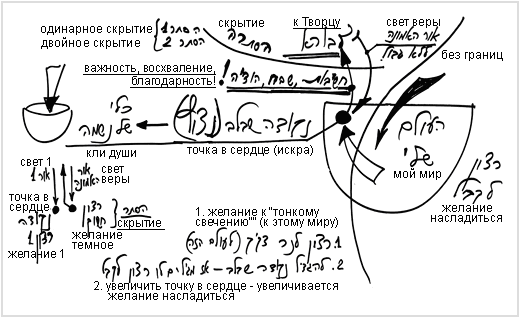 одинарное скрытие
двойное скрытие
הסתר 1
הסתר 2
скрытие
הסתרה
к Творцу
свет веры
אור האמונה
ללא גבול
без границ
важность, восхваление,
благодарность!
חשיבות, שבח, הודיה!
כלי
של נשמה
נקודה שבלב (ניצוץ)
העולם
שלי
кли души
точка в сердце (искра)
мой мир
רצון
לקבל
желание
насладиться
свет 1
אור 1
אור
האמונה
свет
веры
точка в
сердце
נקודה
רצון 1
желание 1
רצון
הסתר
скрытие
желание
темное
1. желание к "тонкому
свечению"" (к этому миру)
1. רצון לנר דקיק (לעולם הזה)
2. להגדיל נקודה שבלב - אז מגדילים לו רצון לקבל
2. увеличить точку в сердце - увеличивается
желание насладиться